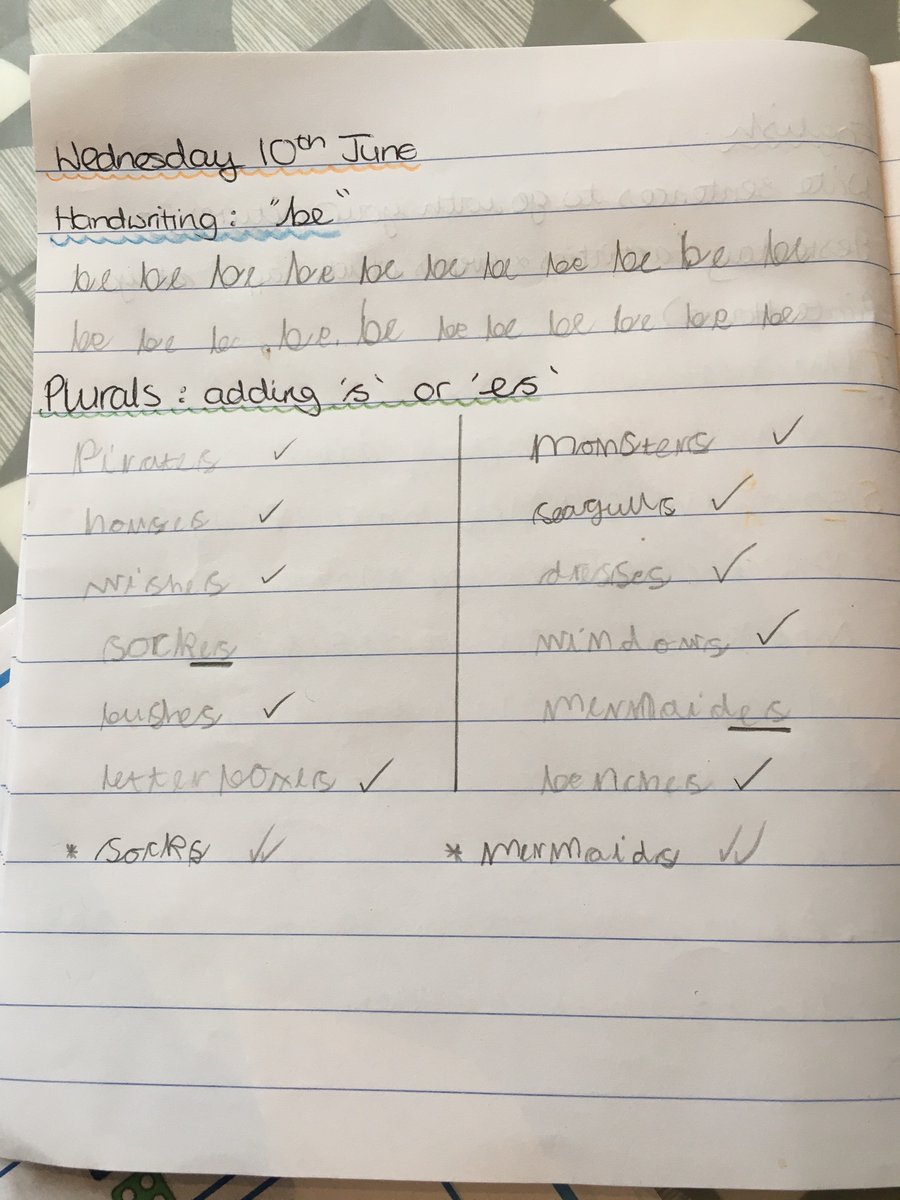 Wednesday 10th June
Handwriting: "be"
be be be be be be be be be be be
be be be be be be be be be be be
Plurals: adding 's' or 'es'
Pirates ✓ Monsters ✓
houses ✓ seagulls ✓
wishes ✓ dresses ✓
sockes windows ✓
bushes ✓ Mermaides
letterboxes ✓ benches ✓
* socks ✓✓ * Mermaids ✓✓